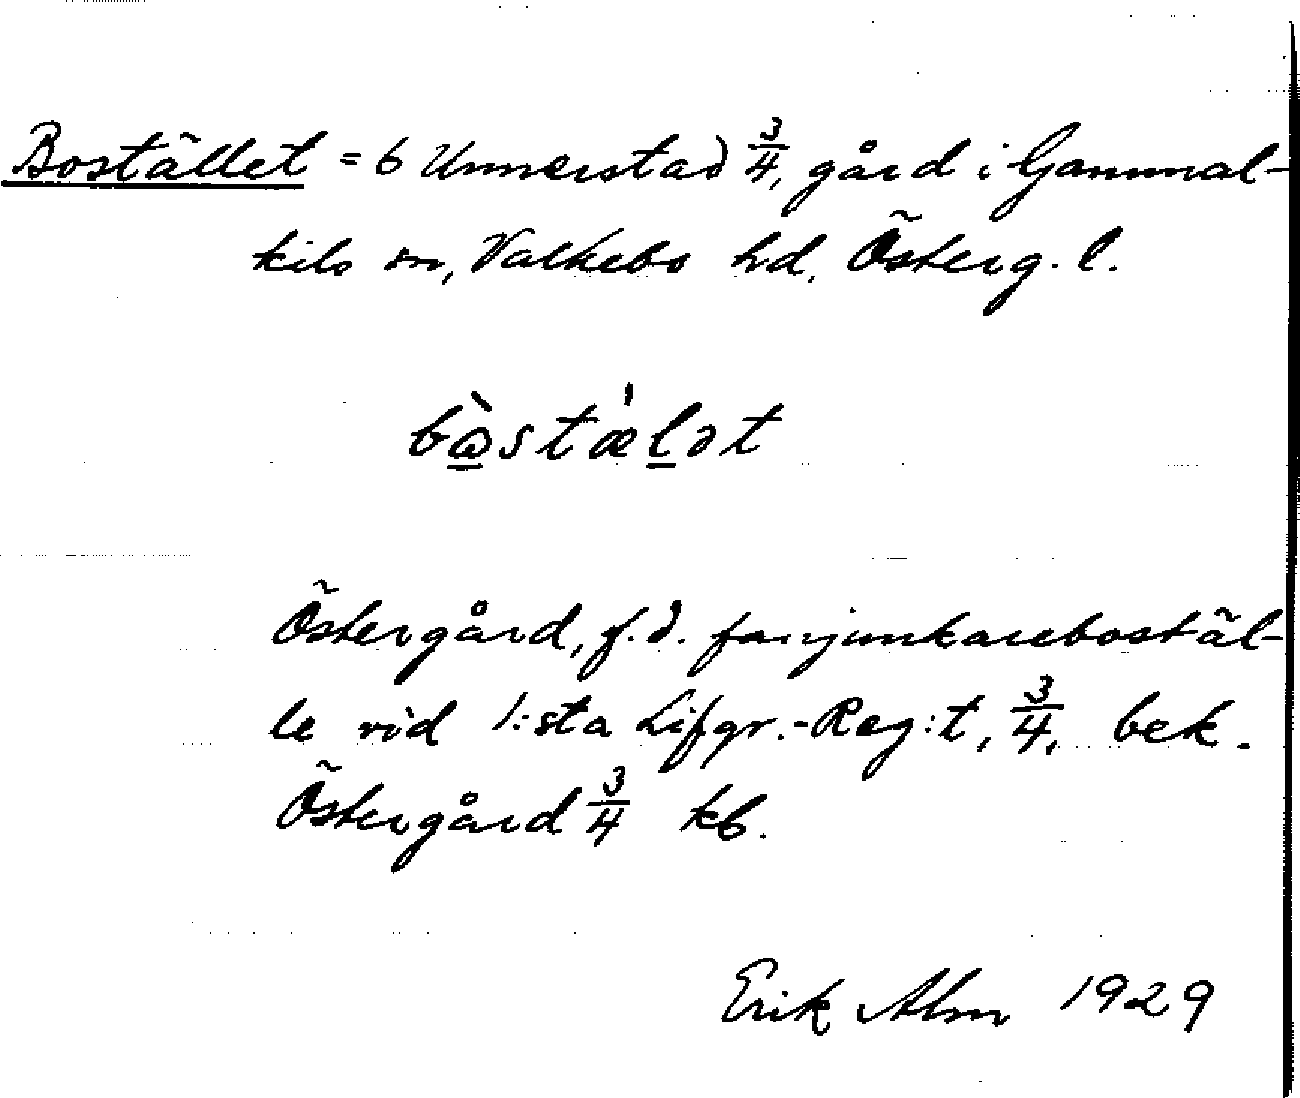 Bostället = 6 Unnerstad 3/4, gård i Gammal-
kils sn, Valkebo hd, Österg. l.
bò̱stæ'l̲ət
Östergård, f.d. fanjunkarebostäl-
le vid 1:sta Lifgr.-Reg:t, 3/4, bek.
Östergård 3/4 kb.
Erik Alm 1929